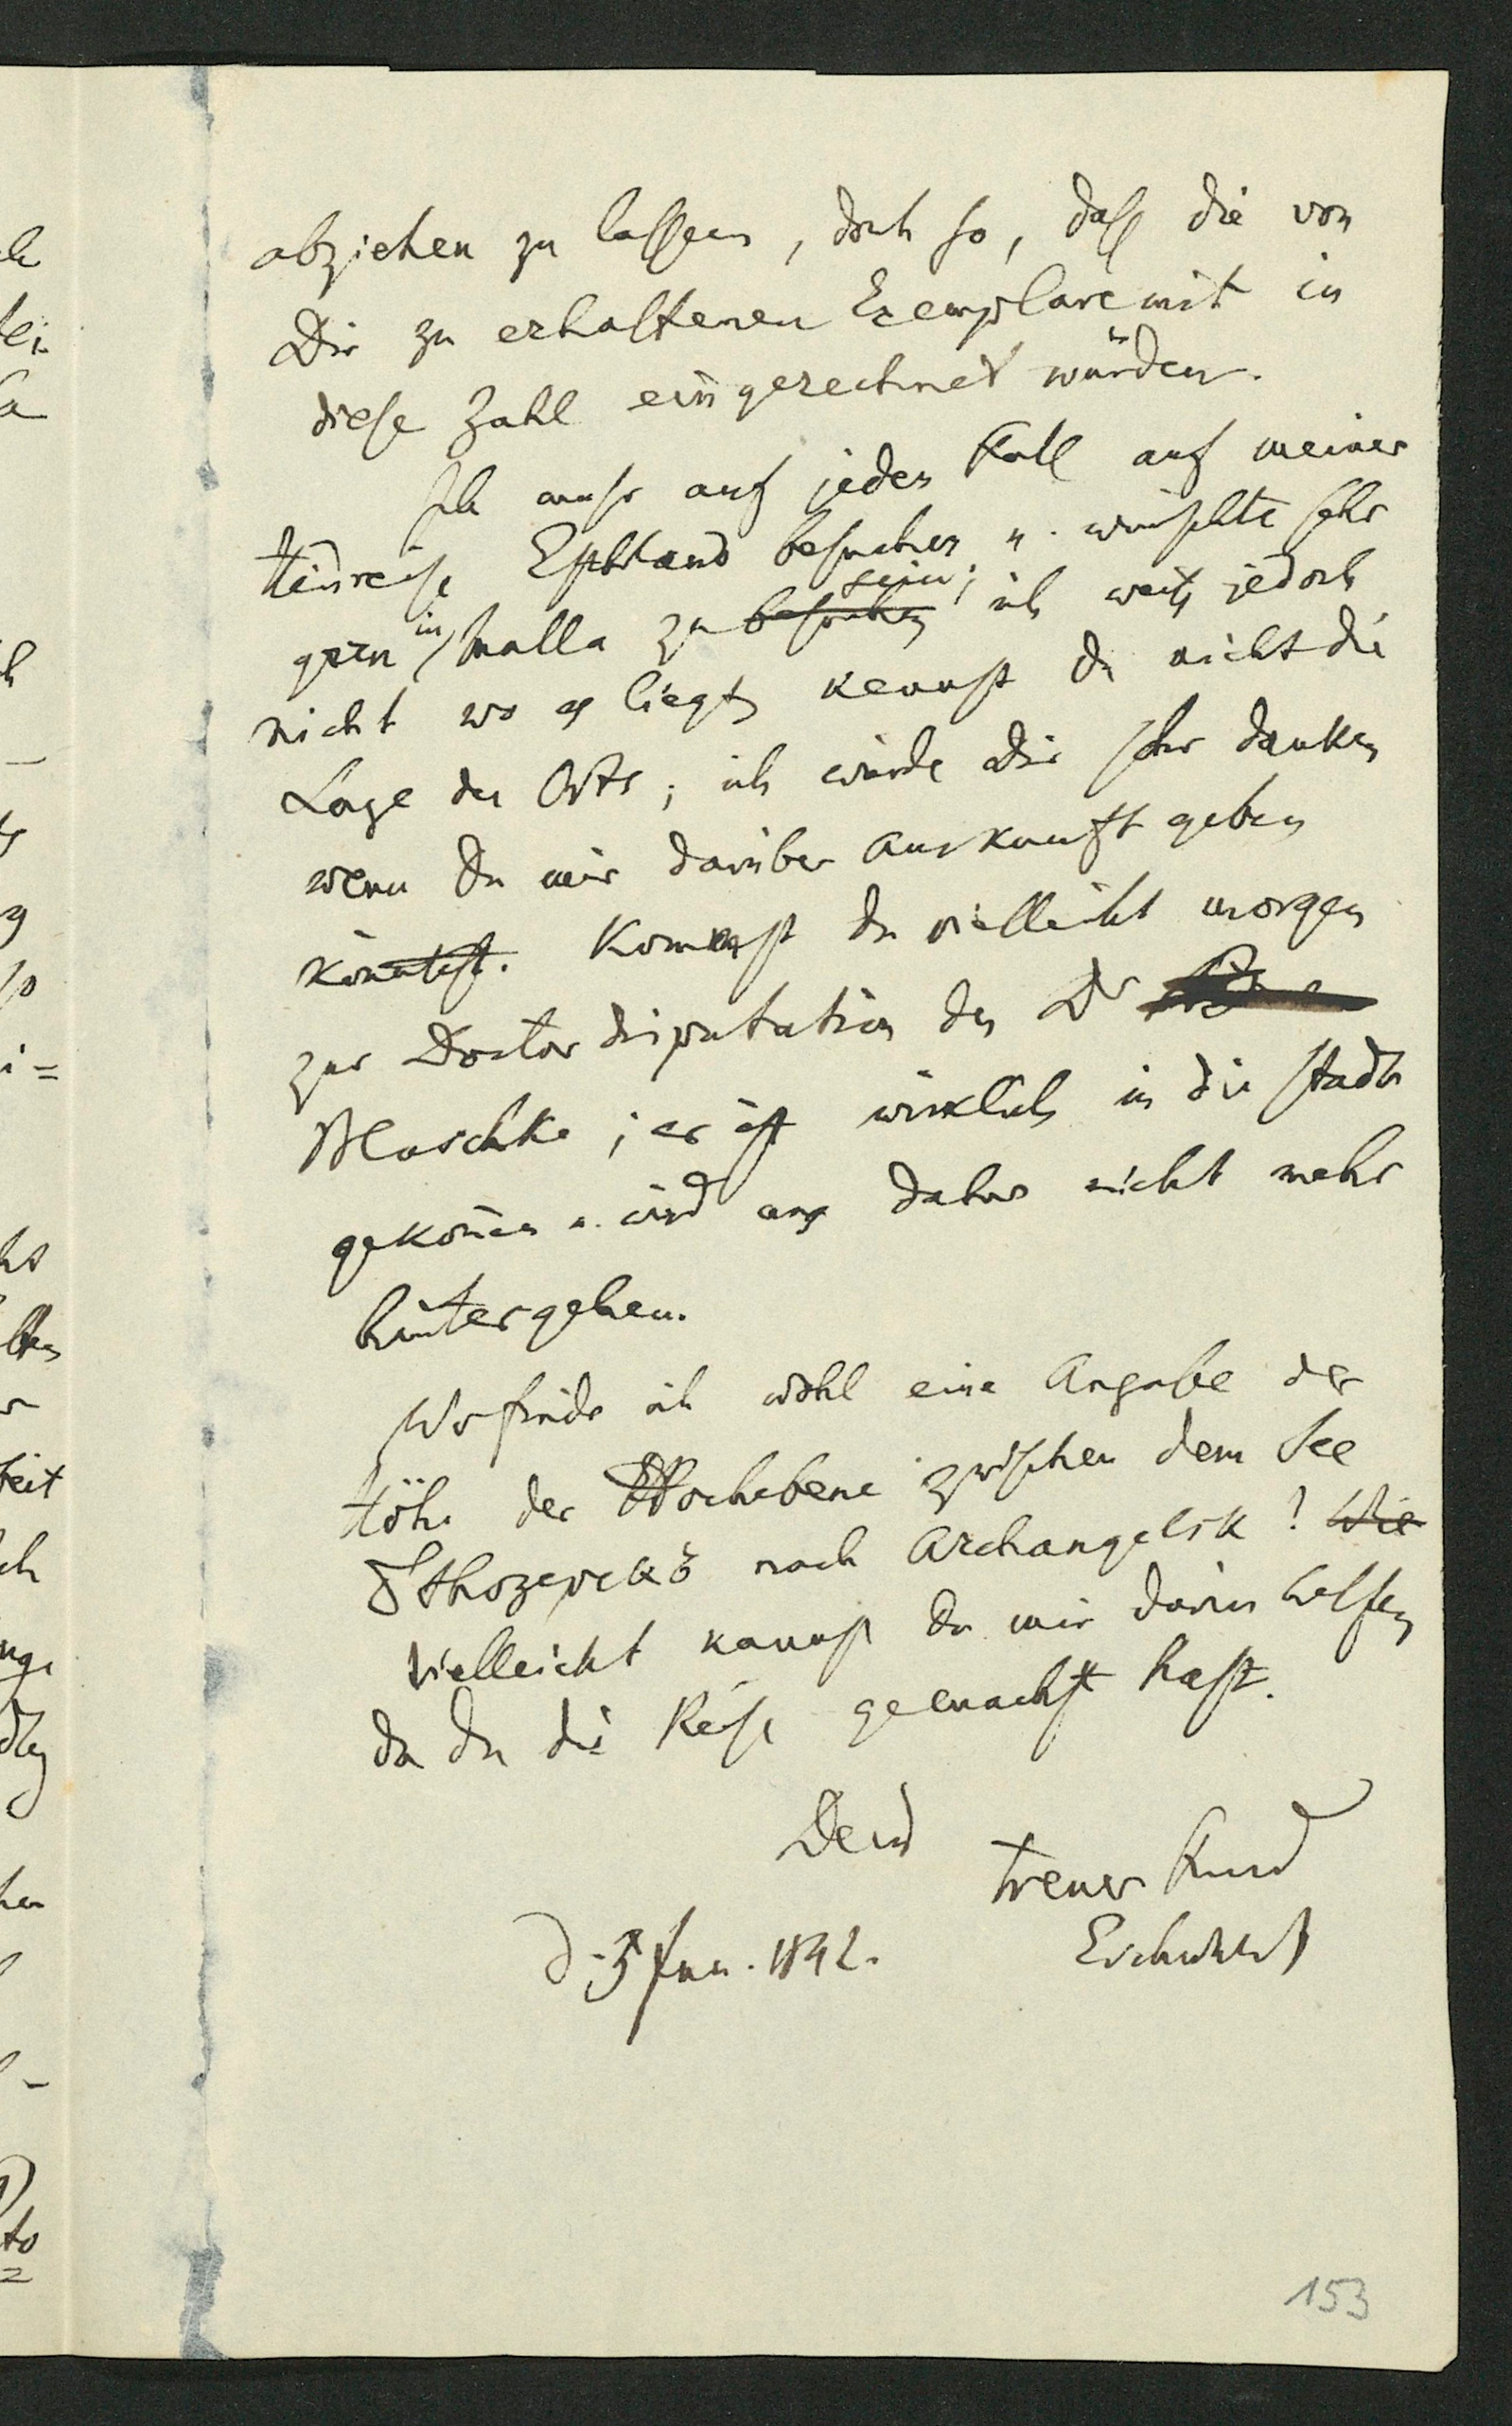 abziehen zu lassen, doch so, dass die von
Dir zu erhaltenen Exemplare mit in
diese Zahl eingerechnet würden.
Ich muss auf jeden Fall auf meiner
Hinreise Ehstland besuchen u. wünschte sehr
gern in Malla zu besuchen sein; ich weiss jedoch
nicht wo es liegt, kennst Du nicht die
Lage des Orts; ich würde Dir sehr danken
wenn Du mir darüber Auskunft geben
könntest. Kommst Du vielleicht morgen
zur Doctordisputation des Dr
Maschke; er ist wirklich in die Stadt
gekom̄en u. wird uns daher nicht mehr
hintergehen.
Wo finde ich wohl eine Angabe der
Höhe der Hochebene zwischen dem See
nach Archangelsk! Wie
vielleicht kannst Du mir darin helfen
da Du die Reise gemacht hast.
Dein
treuer Freund
d. 3 Jan. 1842.
Eichwald
153